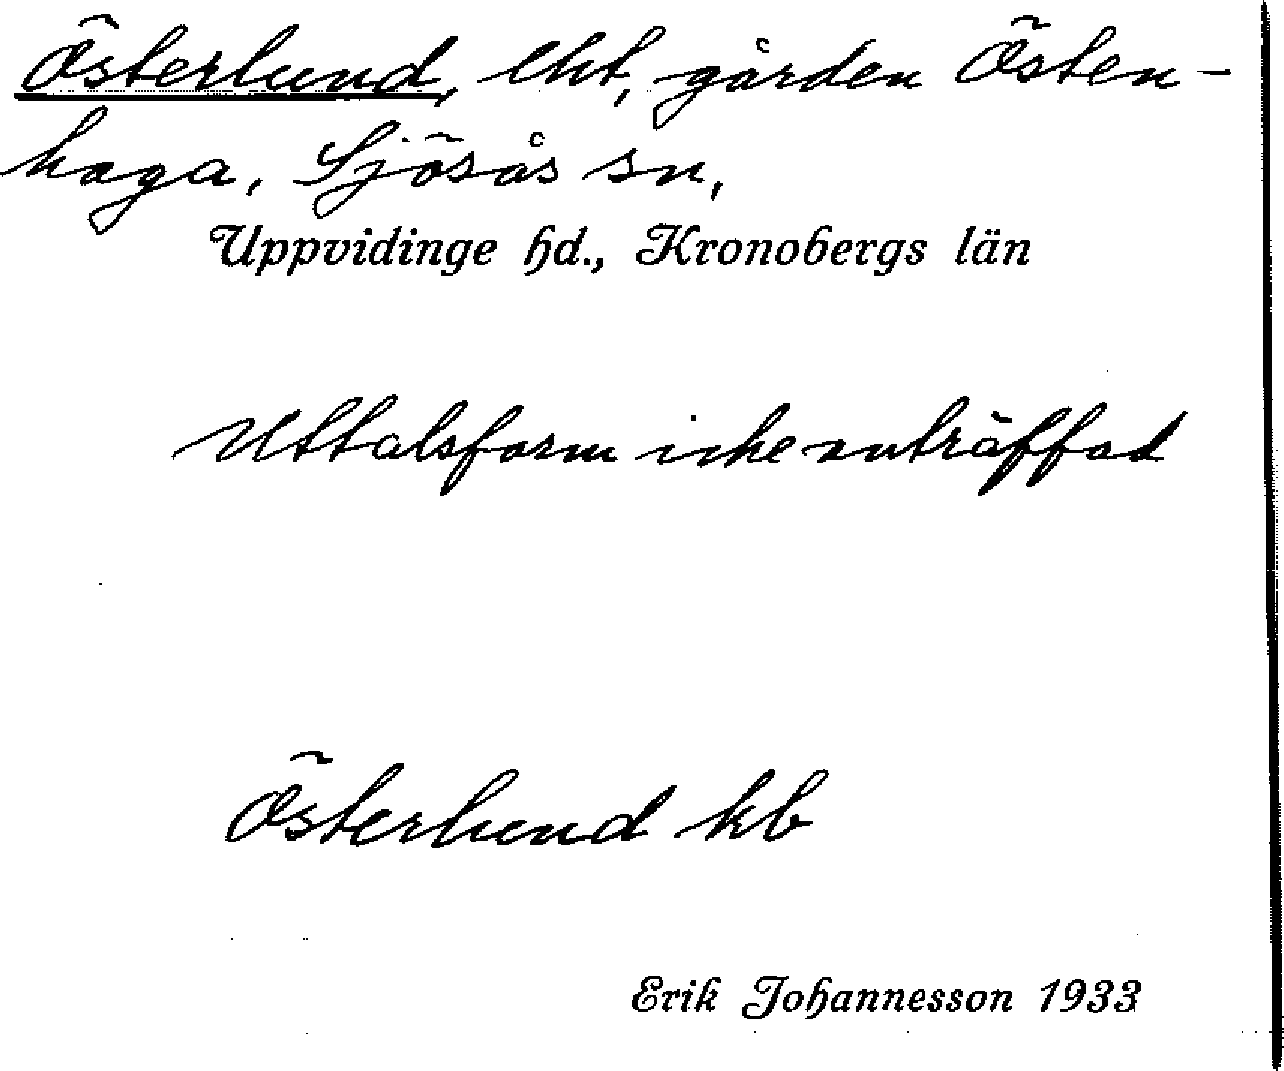 Österlund, lht, gården Östen-
haga, Sjösås sn,
Uppvidinge hd., Kronobergs län
Uttalsform icke anträffad
Österlund kb
Erik Johannesson 1933